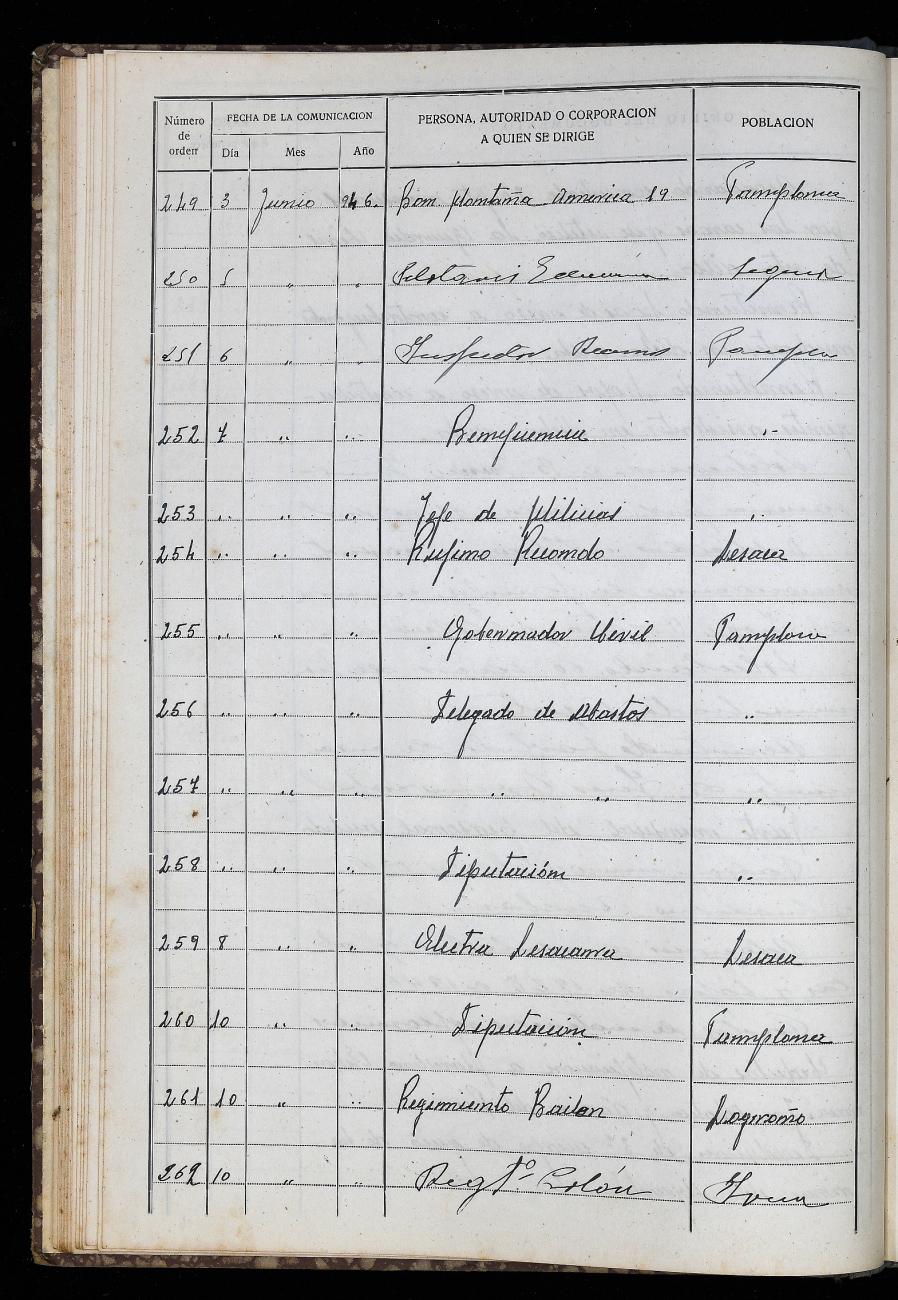 Número de orden FECHA DE LA COMUNICACION PERSONA, AUTORIDAD O CORPORACION A QUIEN SE DIRIGE POBLACION
Día Mes Año
249 3 Junio 946. Bon. Montaña America 19 Pamplona
250 5 " "
251 6 " " Inspector Recursos Pampla
252 7 " " Beneficencia "
253 " " " Jefe de Milicias "
254 " " " Rufino Recondo Lesaca
255 " " " Gobernador Civil Pamplona
256 " " " Delegado de Abastos "
257 " " " " " "
258 " " " Diputación "
259 8 " " Electra Lesacarra Lesaca
260 10 " " Diputación Pamplona
261 10 " " Regimiento Bailen Logroño
262 10 " " Regtº Colón Irun